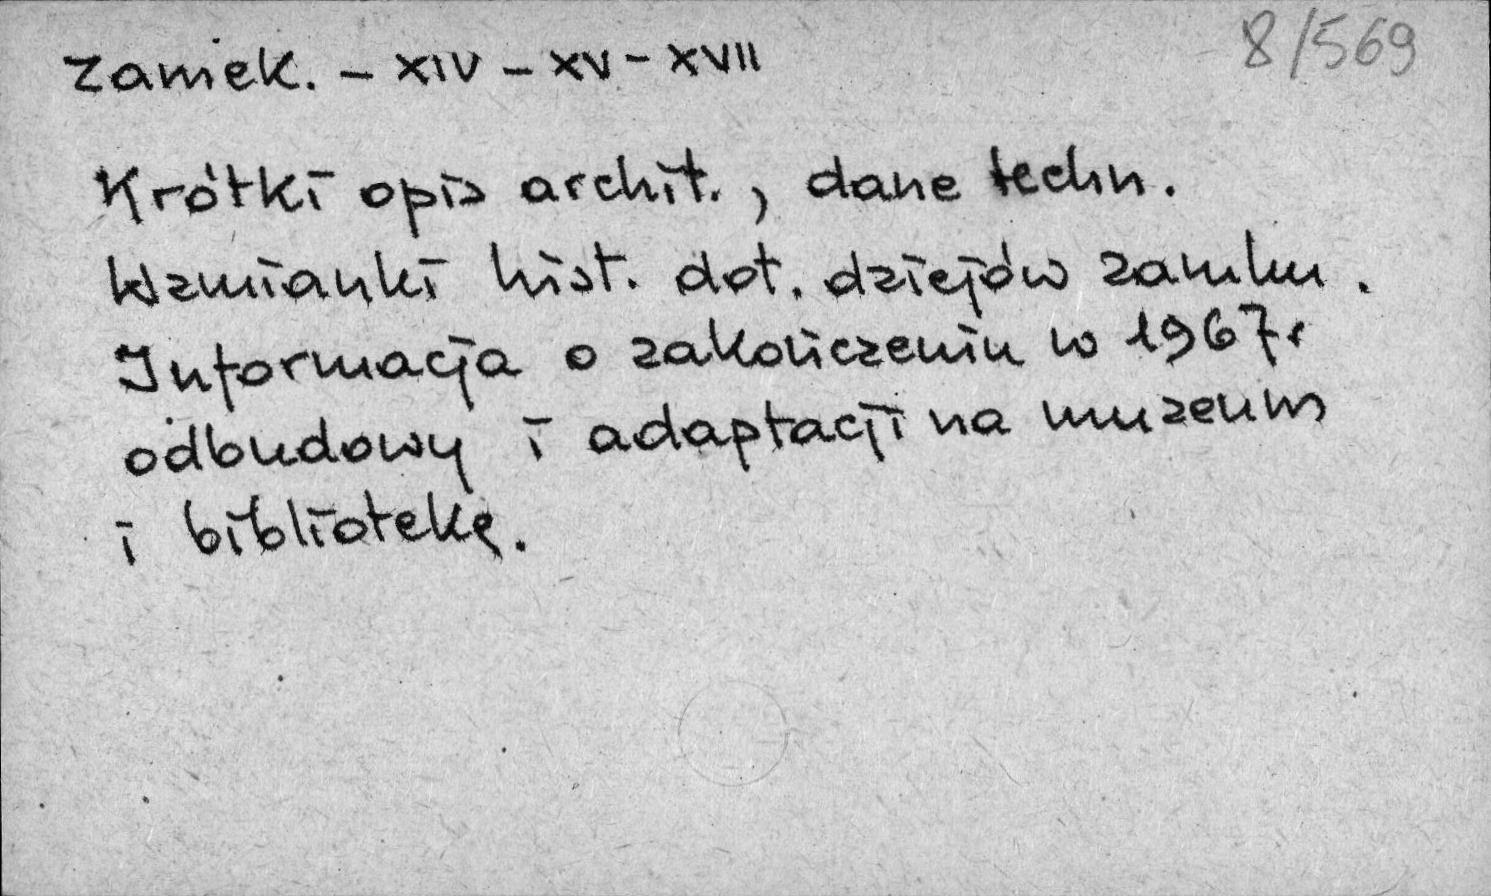 8/569
Zamek. - XIV - XV - XVII
Krótki opis archit., dane techn.
Wzmianki hist. dot. dziejów zamku.
Informacja o zakończeniu w 1967r
odbudowy i adaptacji na muzeum
i bibliotekę.